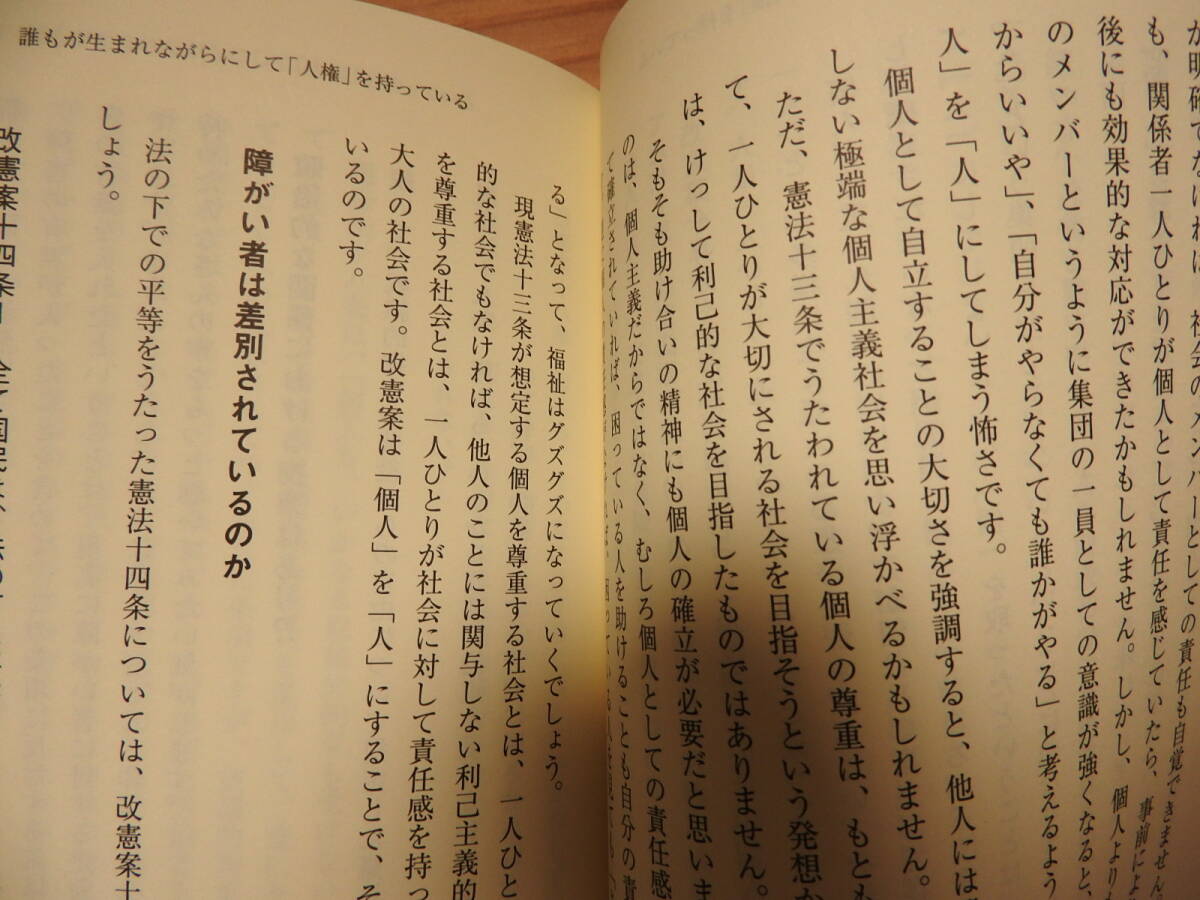 が明確でなければ、社会のメンバーとしての責任も自覚できません。
も、関係者一人ひとりが個人として責任を感じていたら、事前によ
後にも効果的な対応ができたかもしれません。しかし、個人よりも
のメンバーというように集団の一員としての意識が強くなると、
からいいや」、「自分がやらなくても誰かがやる」と考えるよう
人」を「人」にしてしまう怖さです。
個人として自立することの大切さを強調すると、他人には
しない極端な個人主義社会を思い浮かべるかもしれません。
ただ、憲法十三条でうたわれている個人の尊重は、もとも
て、一人ひとりが大切にされる社会を目指そうという発想か
は、けっして利己的な社会を目指したものではありません。
そもそも助け合いの精神にも個人の確立が必要だと思いま
のは、個人主義だからではなく、むしろ個人としての責任感
て確立されていれば、困っている人を助けることも自分の責
誰もが生まれながらにして「人権」を持っている
る」となって、福祉はグズグズになっていくでしょう。
現憲法十三条が想定する個人を尊重する社会とは、一人ひと
的な社会でもなければ、他人のことには関与しない利己主義的
を尊重する社会とは、一人ひとりが社会に対して責任感を持っ
大人の社会です。改憲案は「個人」を「人」にすることで、そ
いるのです。
障がい者は差別されているのか
法の下での平等をうたった憲法十四条については、改憲案十
しょう。
改憲案十四条